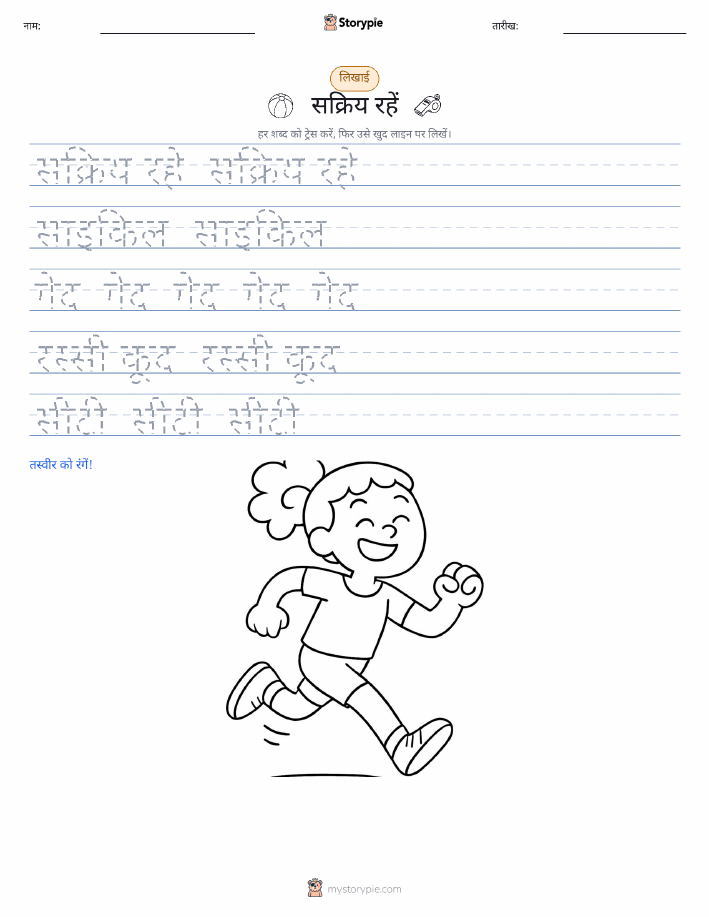 नाम: Storypie तारीख:
लिखाई
सक्रिय रहें
हर शब्द को ट्रेस करें, फिर उसे खुद लाइन पर लिखें।
सक्रिय रहे सक्रिय रहे
साइकिल साइकिल
गेद गेद गेद गेद गेद
रस्सी कूद रस्सी कूद
सीटी सीटी सीटी
तस्वीर को रंगें!
mystorypie.com